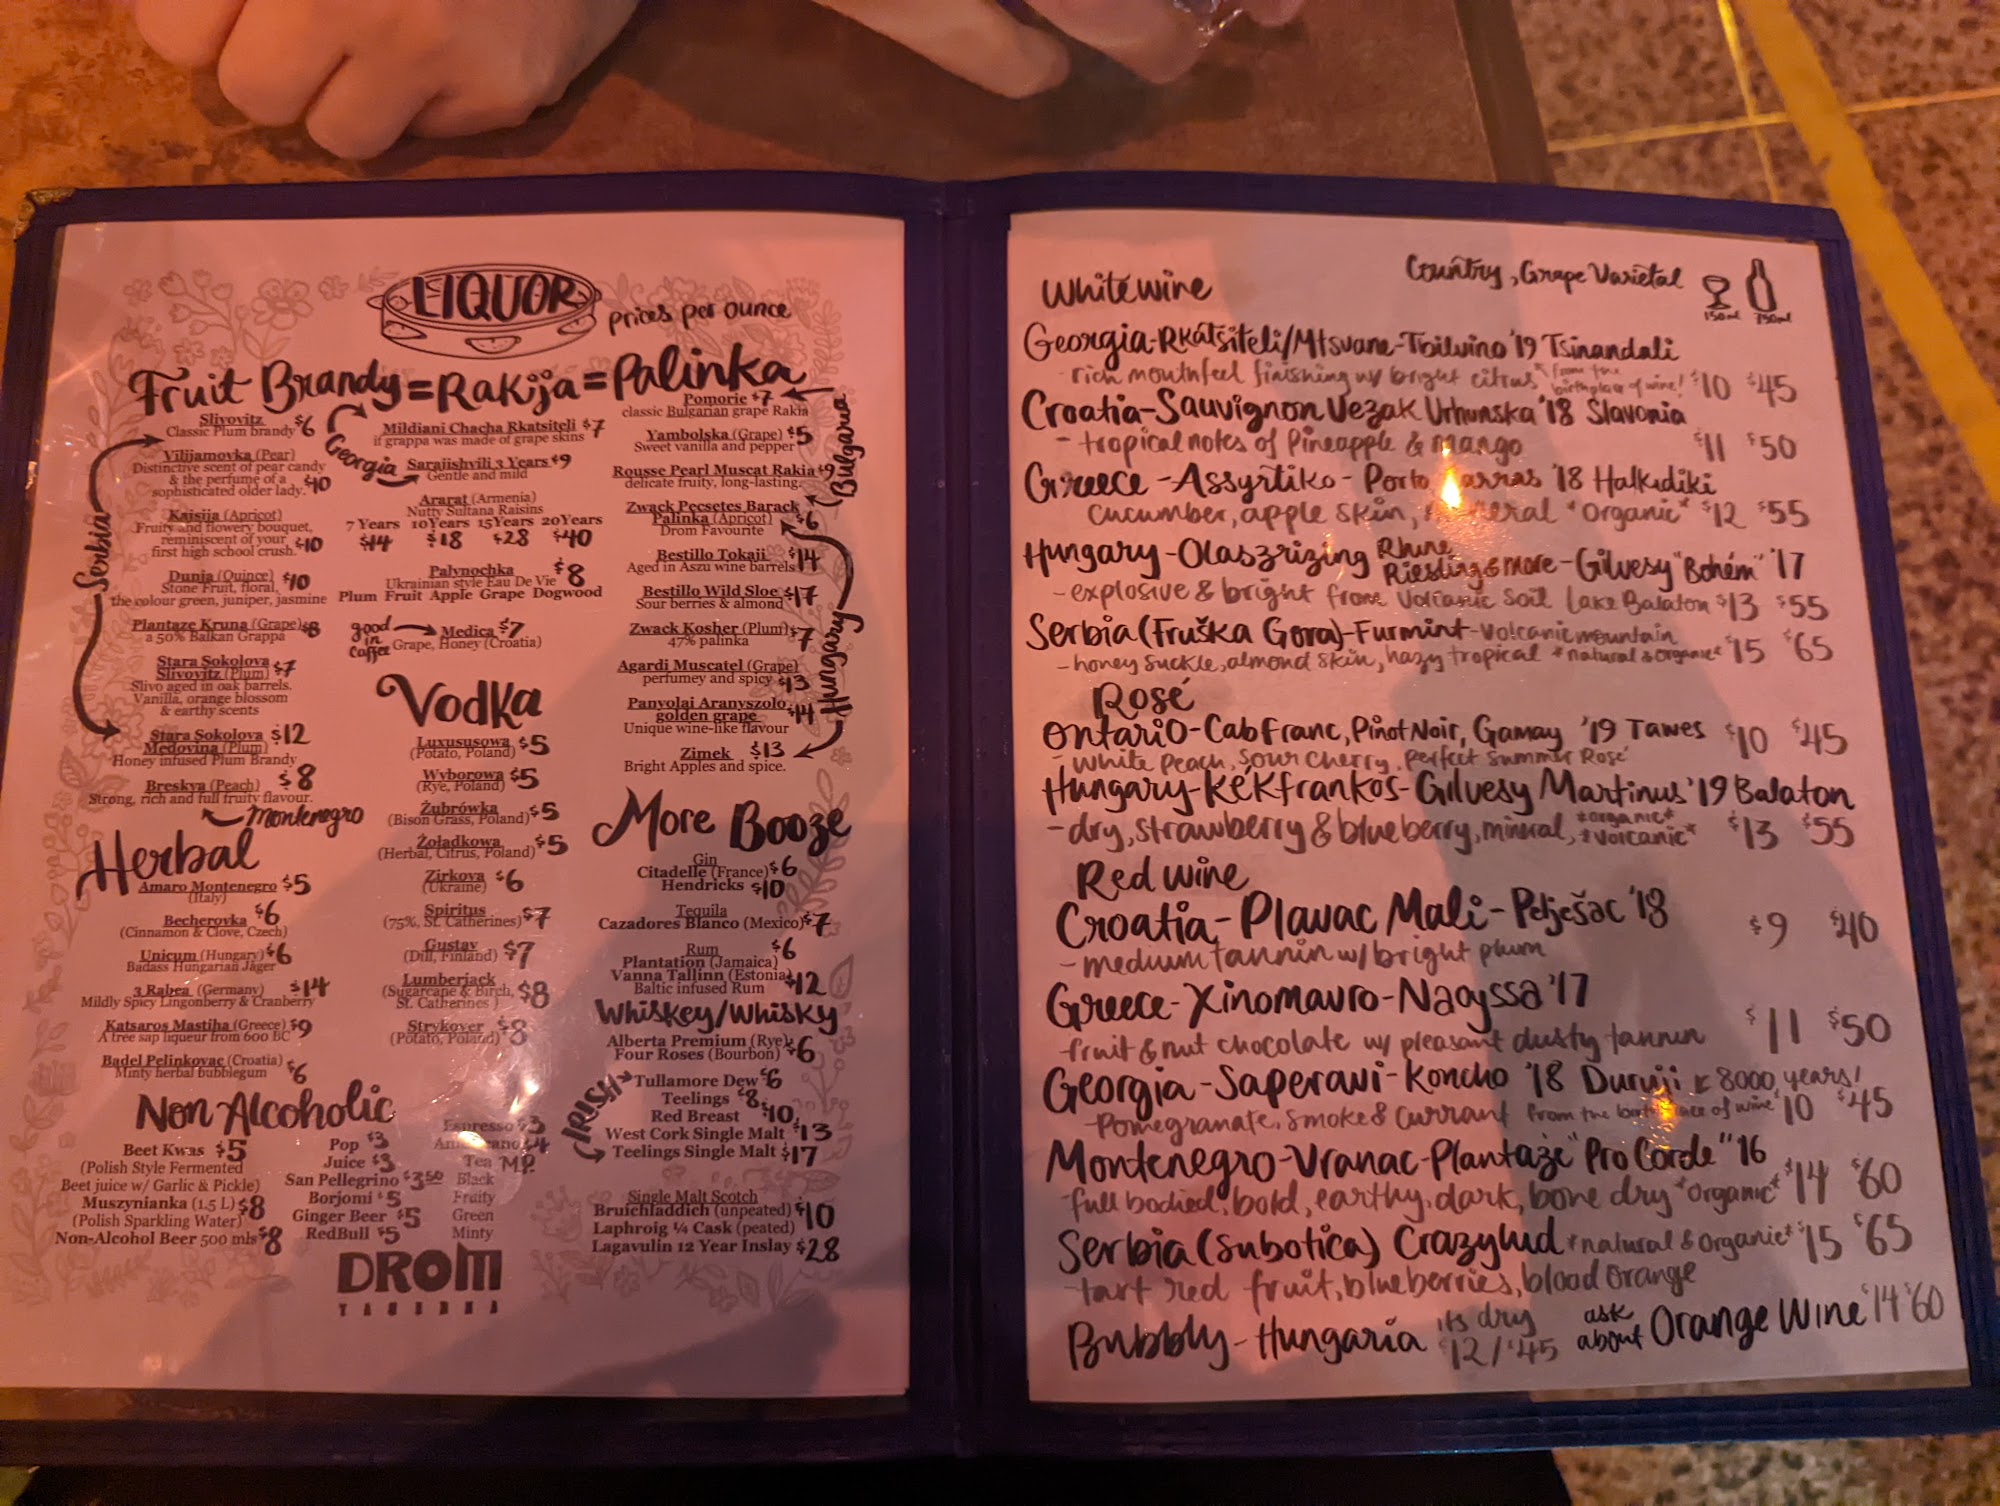 LIQUOR
prices per ounce
Fruit Brandy = Rakija = Palinka
Serbia
Slivovitz $6
Classic Plum brandy
Vilijamovka (Pear)
Distinctive scent of pear candy
& the perfume of a
sophisticated older lady. $10
Kaisija (Apricot)
Fruity and flowery bouquet,
reminiscent of your
first high school crush. $10
Dunja (Quince) $10
Stone Fruit, floral,
the colour green, juniper, jasmine
Plantaze Kruna (Grape) $8
a 50% Balkan Grappa
Stara Sokolova
Slivovitz (Plum) $7
Slivo aged in oak barrels.
Vanilla, orange blossom
& earthy scents
Stara Sokolova $12
Medovina (Plum)
Honey infused Plum Brandy
Breskva (Peach) $8
Strong, rich and full fruity flavour.
Montenegro
Georgia
Mildiani Chacha Rkatsiteli $7
if grappa was made of grape skins
Sarajishvili 3 Years $9
Gentle and mild
Ararat (Armenia)
Nutty Sultana Raisins
7 Years 10 Years 15 Years 20 Years
$14 $18 $28 $40
Palynochka $8
Ukrainian style Eau De Vie
Plum Fruit Apple Grape Dogwood
good in coffee
Medica $7
Grape, Honey (Croatia)
Bulgaria
Pomorie $7
classic Bulgarian grape Rakia
Yambolska (Grape) $5
Sweet vanilla and pepper
Rousse Pearl Muscat Rakia $9
delicate fruity, long-lasting.
Hungary
Zwack Pecsetes Barack
Palinka (Apricot) $6
Drom Favourite
Bestillo Tokaji $14
Aged in Aszu wine barrels
Bestillo Wild Sloe $17
Sour berries & almond
Zwack Kosher (Plum) $7
47% palinka
Agardi Muscatel (Grape)
perfumey and spicy $13
Panyolai Aranyszolo
golden grape $14
Unique wine-like flavour
Zimek $13
Bright Apples and spice.
Vodka
Luxususowa $5
(Potato, Poland)
Wyborowa $5
(Rye, Poland)
Żubrówka $5
(Bison Grass, Poland)
Żoładkowa $5
(Herbal, Citrus, Poland)
Zirkova $6
(Ukraine)
Spiritus $7
(75%, St. Catherines)
Gustav $7
(Dill, Finland)
Lumberjack $8
(Sugarcane & Birch,
St. Catherines )
Strykover $8
(Potato, Poland)
Herbal
Amaro Montenegro $5
(Italy)
Becherovka $6
(Cinnamon & Clove, Czech)
Unicum (Hungary) $6
Badass Hungarian Jager
3 Rabea (Germany) $14
Mildly Spicy Lingonberry & Cranberry
Katsaros Mastiha (Greece) $9
A tree sap liqueur from 600 BC
Badel Pelinkovac (Croatia)
Minty herbal bubblegum $6
More Booze
Gin
Citadelle (France) $6
Hendricks $10
Tequila
Cazadores Blanco (Mexico) $7
Rum
Plantation (Jamaica) $6
Vanna Tallinn (Estonia) $12
Baltic infused Rum
Whiskey/Whisky
Alberta Premium (Rye)
Four Roses (Bourbon) $6
IRISH
Tullamore Dew $6
Teelings $8
Red Breast $10
West Cork Single Malt $13
Teelings Single Malt $17
Single Malt Scotch
Bruichladdich (unpeated) $10
Laphroig ¼ Cask (peated)
Lagavulin 12 Year Inslay $28
Non Alcoholic
Beet Kwas $5
(Polish Style Fermented
Beet juice w/ Garlic & Pickle)
Muszynianka (1.5 L) $8
(Polish Sparkling Water)
Non-Alcohol Beer 500 mls $8
Pop $3
Juice $3
San Pellegrino $3.50
Borjomi $5
Ginger Beer $5
RedBull $5
Espresso $3
Americano $4
Tea
Black
Fruity
Green
Minty
DROM
TABERNA
White wine
Country, Grape Varietal
150ml 750ml
Georgia-Rkátsiteli/Mtsvane-Tbilvino '19 Tsinandali
rich mouthfeel finishing w/ bright citrus *from the birthplace of wine! $10 $45
Croatia-Sauvignon Vezak Vrhunska '18 Slavonia
- tropical notes of Pineapple & mango $11 $50
Greece - Assyrtiko - Porto Carras '18 Halkidiki
cucumber, apple skin, mineral *organic* $12 $55
Hungary-Olaszrizing Rhine Riesling & more - Gilvesy "Bohém" '17
- explosive & bright from Volcanic Soil Lake Balaton $13 $55
Serbia (Fruška Gora)-Furmint-volcanic mountain
- honey suckle, almond skin, hazy tropical *natural & organic* $15 $65
Rosé
Ontario-Cab Franc, Pinot Noir, Gamay '19 Tawes $10 $45
- White Peach, Sour Cherry, Perfect Summer Rosé
Hungary-Kékfrankos-Gilvesy Martinus '19 Balaton
- dry, strawberry & blueberry, mineral, *organic* *volcanic* $13 $55
Red wine
Croatia-Plavac Mali-Pelješac '18 $9 $40
- medium tannin w/ bright plum
Greece-Xinomavro-Naoyssa '17
- fruit & nut chocolate w/ pleasant dusty tannin $11 $50
Georgia-Saperavi-Koncho '18 Duruji 8000 years!
- Pomegranate, smoke & currant from the birthplace of wine $10 $45
Montenegro-Vranac-Plantaže "Pro Corde" '16
- full bodied, bold, earthy, dark, bone dry *organic* $14 $60
Serbia (Subotica) Crazy lud *natural & organic* $15 $65
- tart red fruit, blueberries, blood orange
Bubbly - Hungaria its dry $12/$45 ask about Orange Wine $14 $60